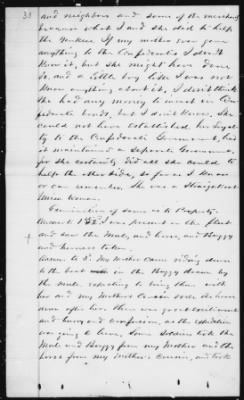 33
and neighbors and some of the merchants
because what I said she did to help
the Yankees if my mother ever gave
anything to the Confederates I didn't
Know it, but she might have done
so, and a little boy like I was not
Know anything about it, I don't think
She had any money to invest in Con
federate bonds, but I don't know, She
could not have established her loyal
ty to the Confederate Government, had
it maintained a Separate Government
for she certainly did all she could to
help the other side, so far as I know
or can remember. She was a Straightout
Union Woman.
Examination of same as to Property.
Answer to 1 & 2. I was present in the flesh
and saw the Mule, and horse, and Buggy
and harness taken.
Answer to 3. My Mother came riding down
to the boat in the Buggy drawn by
the Mule, expecting to bring them with
her and my Mother's Cousin rode his horse
down after her. there was great excitement
and hurry and confusion, as the soldiers
was going to leave. Some Soldiers took the
Mule and Buggy from my Mother and the
horse from my Mother's Cousin, and took